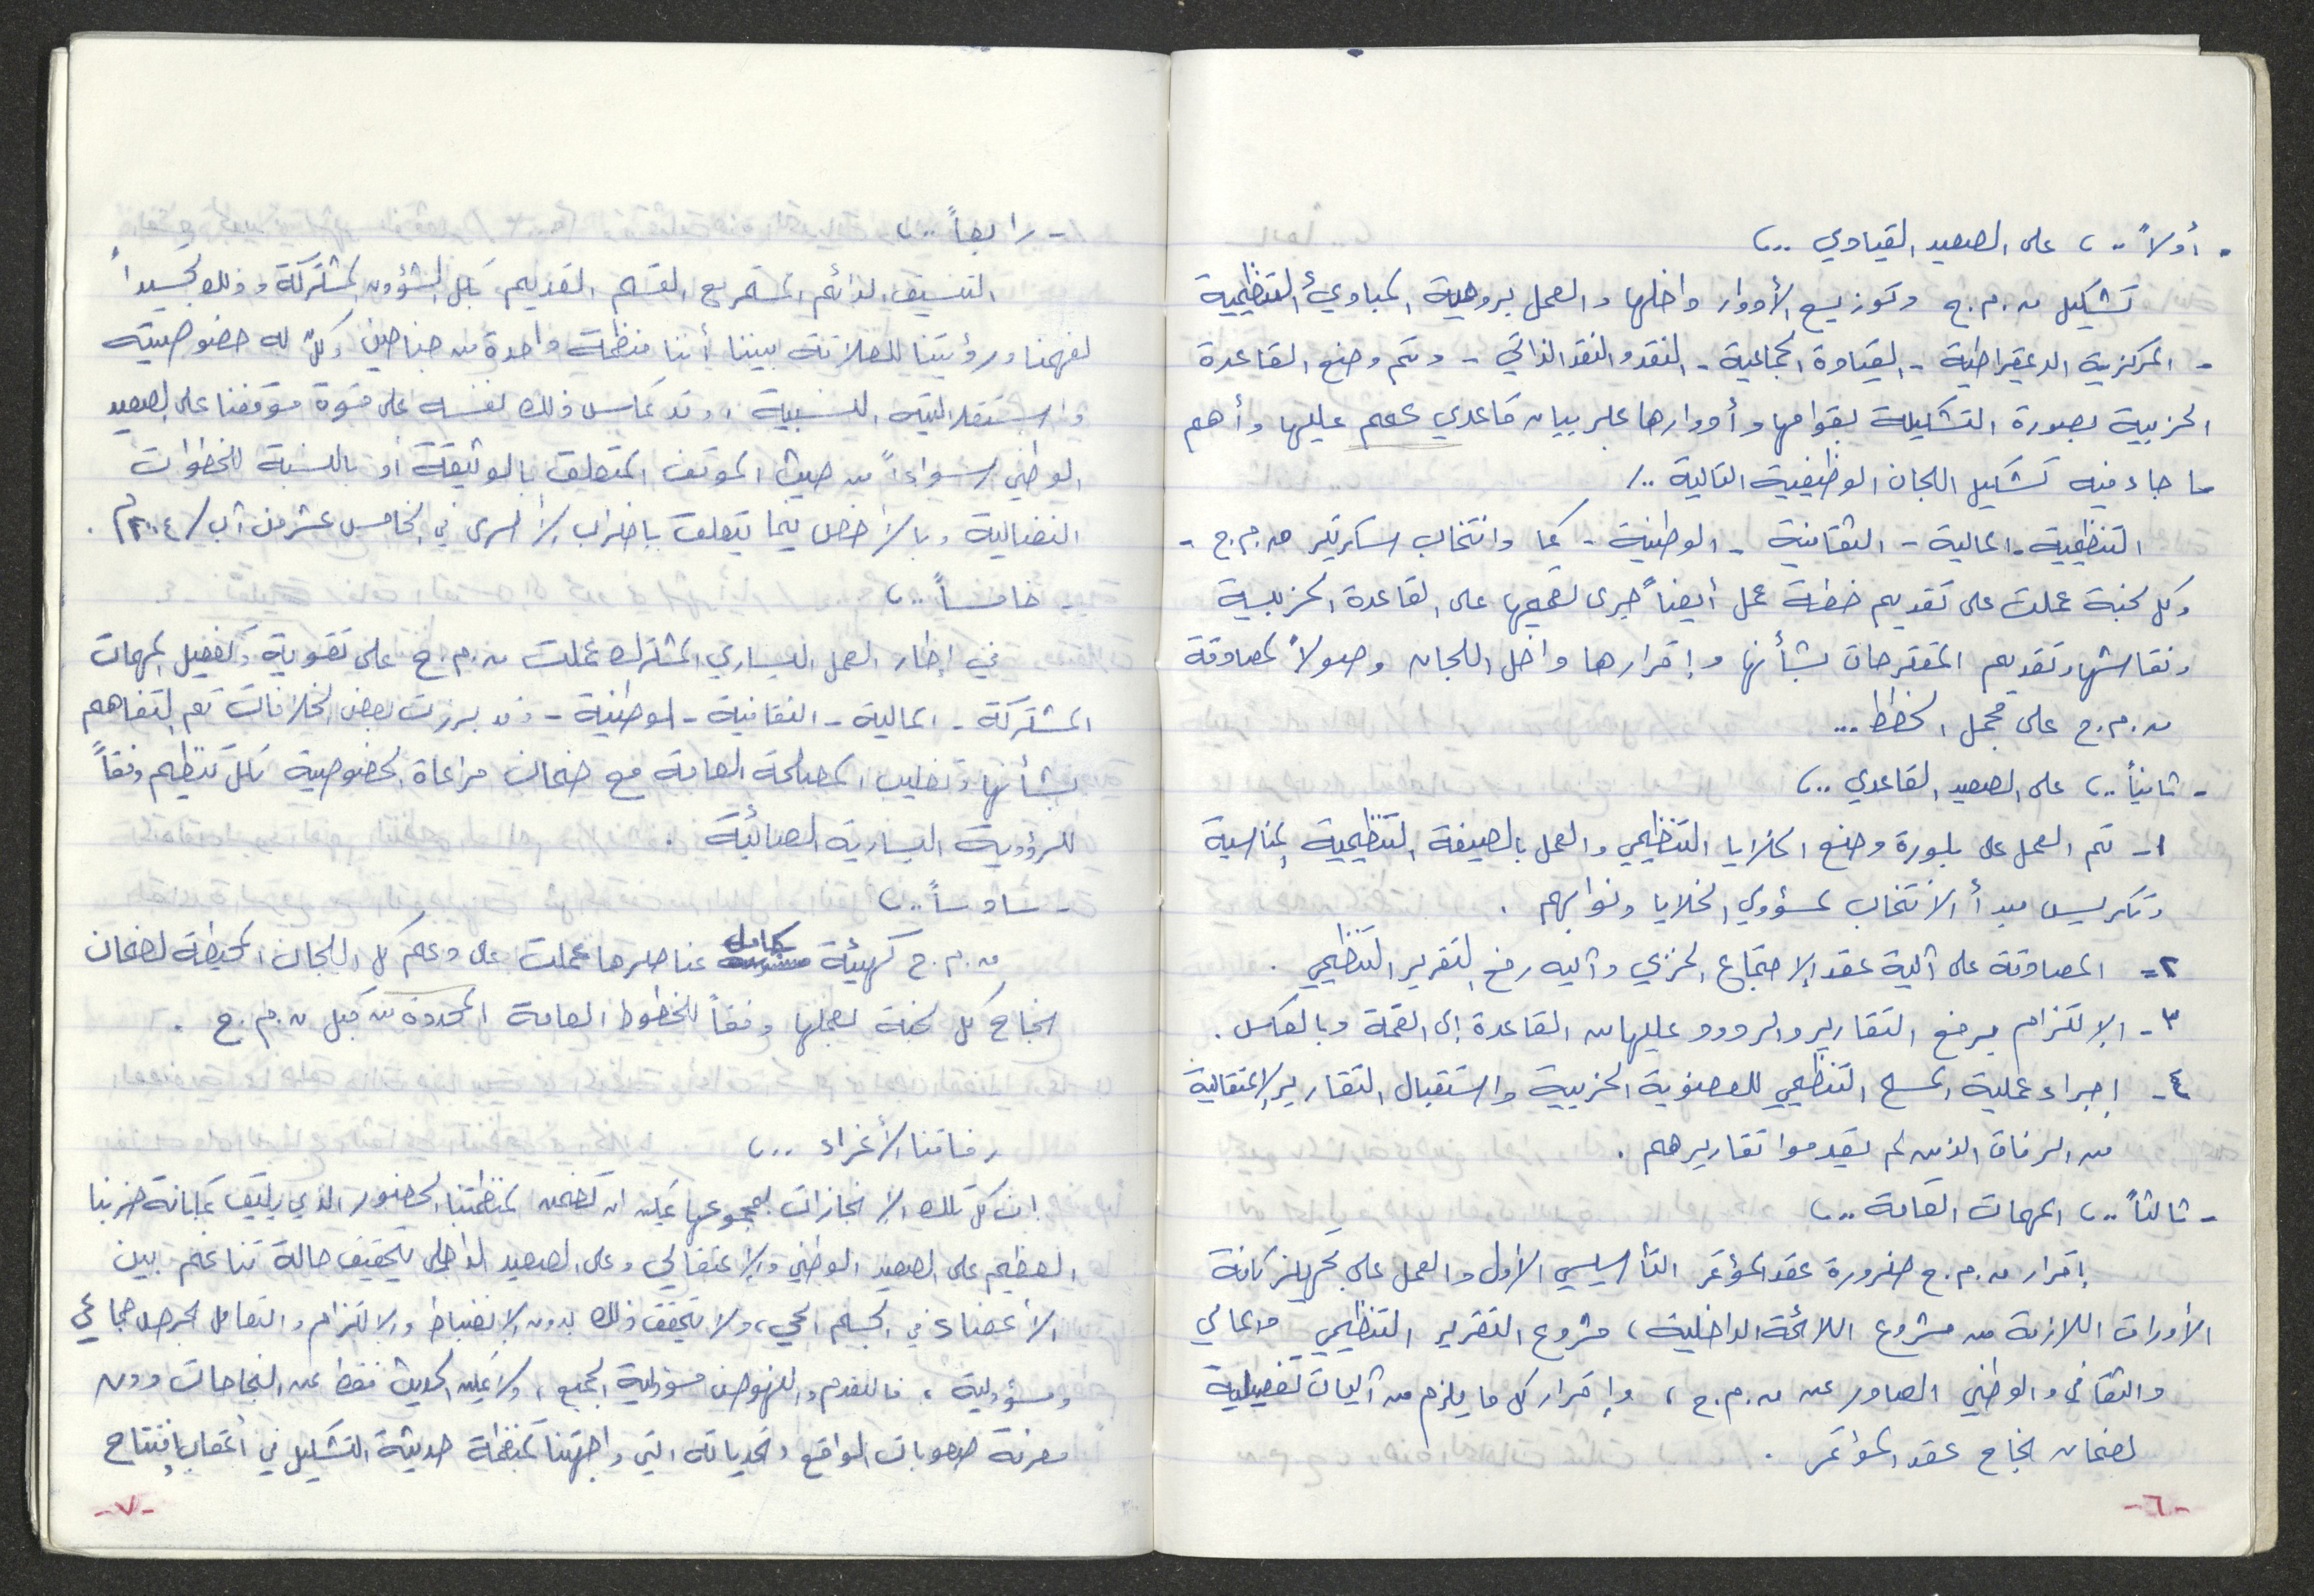 - أولاً ..، على الصعيد القيادي ..،
تشكيل م.م.ج وتوزيع الأدوار داخلها والعمل بروحية المبادئ التنظيمية
- المركزية الديمقراطية - القيادة الجماعية - النقد والنقد الذاتي - وتم وضع القاعدة
الحزبية بصورة التشكيلة بقوامها وأدوارها عبر بيان قاعدي عمم عليها وأهم
ما جاء فيه تشكيل اللجان الوظيفية التالية ../
التنظيمية - المالية - الثقافية - الوطنية - كما وانتخاب سكرتير م.م.ج -
وكل لجنة عملت على تقديم خطة عمل أيضاً جرى تعميمها على القاعدة الحزبية
ونقاشها وتقديم المقترحات بشأنها وإقرارها داخل اللجان وصولاً لمصادقة
م.م.ج على مجمل الخطط ...
- ثانياً ..، على الصعيد القاعدي ..،
١- تم العمل على بلورة وضع الخلايا التنظيمي والعمل بالصيغة التنظيمية المناسبة
وتكريس مبدأ الانتخاب لمسؤولي الخلايا ونوابهم .
٢- المصادقة على آلية عقد الإجتماع الحزبي وآلية رفع التقرير التنظيمي .
٣- الإلتزام برفع التقارير والردود عليها من القاعدة إلى القمة وبالعكس .
٤- إجراء عملية المسح التنظيمي للعضوية الحزبية واستقبال التقارير الإعتقالية
من الرفاق الذين لم يقدموا تقاريرهم .
- ثالثاً ..، المهمات العامة ..،
إقرار م.م.ج ضرورة عقد المؤتمر التأسيسي الأول والعمل على تجهيز كافة
الأوراق اللازمة من مشروع اللائحة الداخلية، مشروع التقرير التنظيمي والمالي
والثقافي والوطني الصادر عن م.م.ج ، وإقرار كل ما يلزم من آليات تفصيلية
لضمان نجاح عقد المؤتمر .
-٦-
- رابعاً ..،
التنسيق الدائم المستمر مع القسم القديم بكل الشؤون المشتركة وذلك تجسيداً
لفهمنا ورؤيتنا للعلاقة بيننا أننا منظمة واحدة من جناحين وكل له خصوصيته
واستقلاليته النسبية ، وقد عكس ذلك نفسه على قوة موقفنا على الصعيد
الوطني سواءاً من حيث الموقف المتعلق بالوثيقة أو بالنسبة للخطوات
النضالية وبالأخص فيما يتعلق باضراب الأسرى في الخامس عشر من آب/٢٠٠٤م .
- خامساً ..،
في إطار العمل اليساري المشترك عملت م.م.ج على تقوية وتفعيل المهمات
المشتركة - المالية - الثقافية - الوطنية - وقد برزت بعض الخلافات تم التفاهم
بشأنها وتغليب المصلحة العامة مع ضمان مراعاة الخصوصية لكل تنظيم وفقاً
للرؤية اليسارية الصائبة .
- سادساً ..،
م.م.ج كهيئة بكامل عناصرها عملت على دعم كل اللجان المحيطة لضمان
انجاح كل لجنة لعملها وفقاً للخطوط العامة المحددة من قبل م.م.ج .
رفاقنا الأعزاء ..،
إن كل تلك الإنجازات بمجموعها يمكن ان تضمن لمنظمتنا الحضور الذي يليق بمكانة حزبنا
العظيم على الصعيد الوطني والإعتقالي وعلى الصعيد الداخلي بتحقيق حالة تناغم بين
الأعضاء في الجسم الحي، ولا يتحقق ذلك بدون الإنضباط والإلتزام والتعامل بحرص جماعي
ومسؤولية ، فالتقدم والنهوض مسؤولية الجميع ، ولا يمكن الحديث فقط عن النجاحات دون
معرفة صعوبات الواقع وتحدياته التي واجهتنا كمنظمة حديثة التشكيل في أعقاب إفتتاح
-٧-